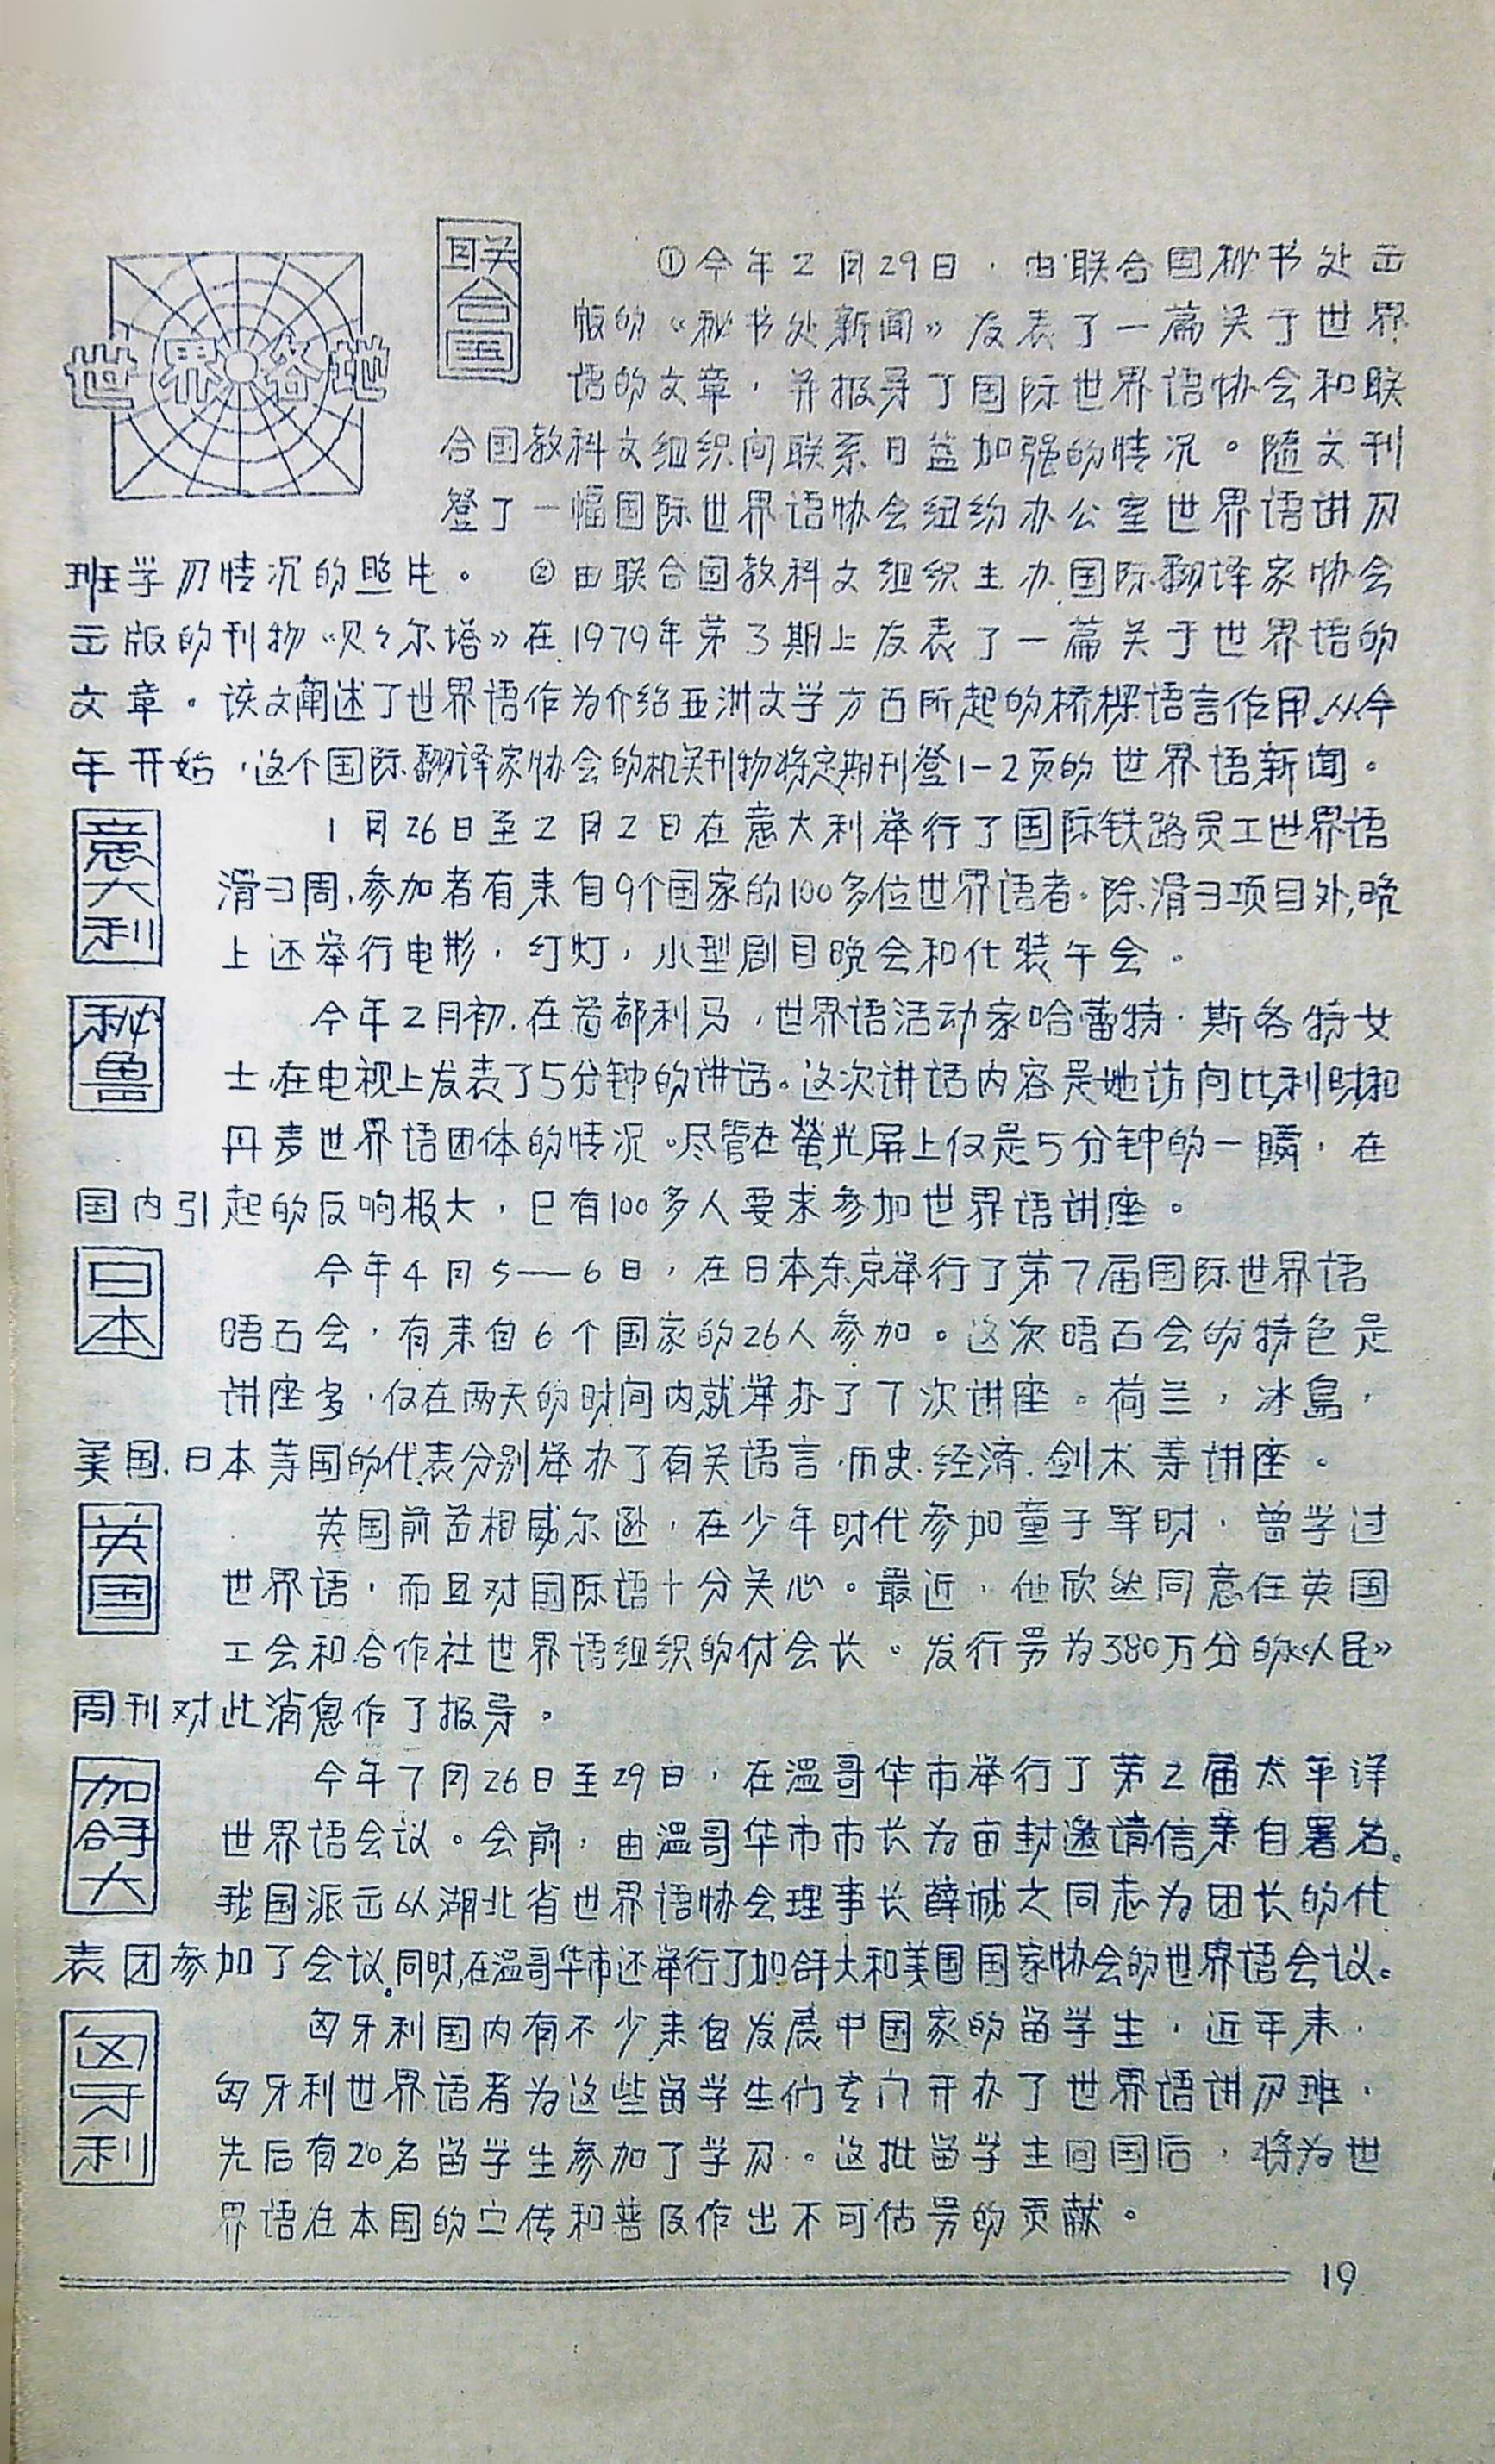 世界各地
联合国
①今年2月29日，由联合国秘书处出
版的《秘书处新闻》发表了一篇关于世界
语的文章，并报导了国际世界语协会和联
合国教科文组织间联系日益加强的情况。随文刊
登了一幅国际世界语协会纽约办公室世界语讲习
班学习情况的照片。 ②由联合国教科文组织主办.国际翻译家协会
出版的刊物《贝々尔塔》在1979年第3期上发表了一篇关于世界语的
文章。该文阐述了世界语作为介绍亚洲文学方面所起的桥樑语言作用.从今
年开始，这个国际翻译家协会的机关刊物将定期刊登1-2页的世界语新闻。
意大利
1月26日至2月2日在意大利举行了国际铁路员工世界语
滑习周,参加者有来自9个国家的100多位世界语者。除滑习项目外,晚
上还举行电影，幻灯，小型剧目晚会和化装午会。
秘鲁
今年2月初.在首都利马，世界语活动家哈蕾特·斯各特女
士,在电视上发表了5分钟的讲话。这次讲话内容是她访问比利时和
丹麦世界语团体的情况。尽管在萤光屏上仅是5分钟的一瞬，在
国内引起的反响极大，已有100多人要求参加世界语讲座。
日本
今年4月5——6日，在日本东京举行了第7届国际世界语
晤面会，有来自6个国家的26人参加。这次晤面会的特色是
讲座多，仅在两天的时间内就举办了7次讲座。荷兰，冰岛，
美国.日本等国的代表分别举办了有关语言.历史.经济.剑术等讲座。
英国
英国前首相威尔逊，在少年时代参加童子军时，曾学过
世界语，而且对国际语十分关心。最近，他欣然同意任英国
工会和合作社世界语组织的付会长。发行量为380万分的《人民》
周刊对此消息作了报导。
加拿大
今年7月26日至29日，在温哥华市举行了第2届太平洋
世界语会议。会前，由温哥华市市长为亩封邀请信亲自署名。
我国派出以湖北省世界语协会理事长薛诚之同志为团长的代
表团参加了会议。同时,在温哥华市还举行了加拿大和美国国家协会的世界语会议。
匈牙利
匈牙利国内有不少来自发展中国家的留学生，近年来，
匈牙利世界语者为这些留学生们专门开办了世界语讲习班，
先后有20名留学生参加了学习。这批留学生回国后，将为世
界语在本国的宣传和普及作出不可估量的贡献。
19